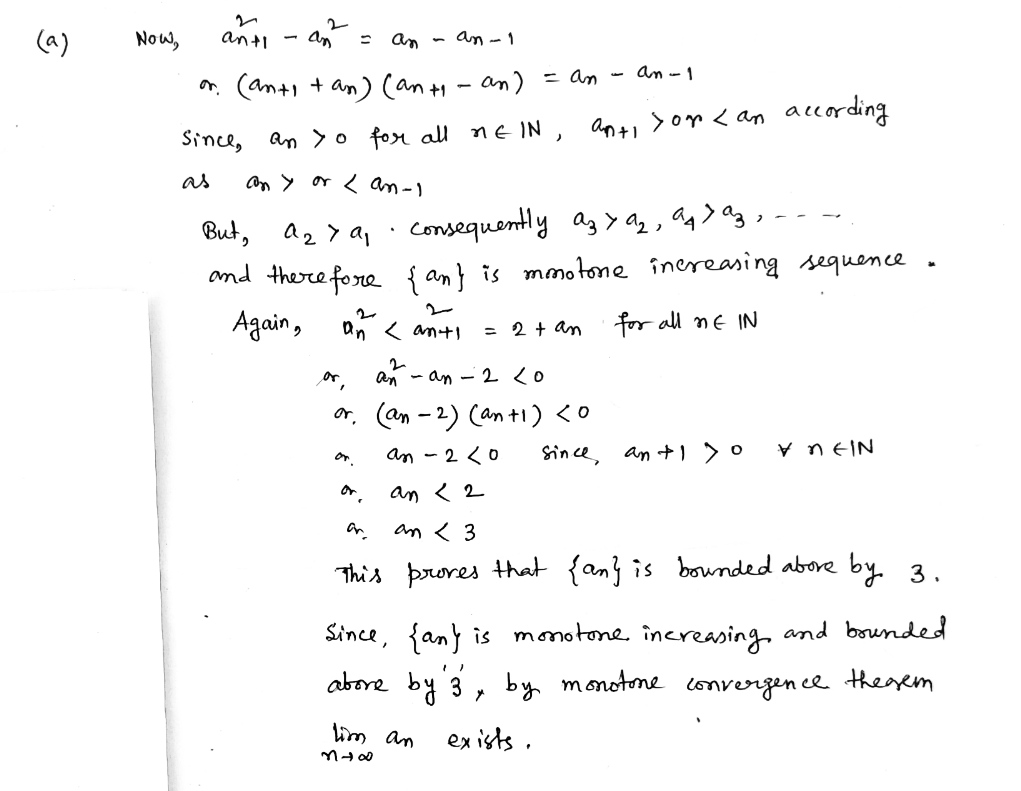 (a) Now, a²ₙ₊₁ - aₙ² = aₙ - aₙ₋₁
or, (aₙ₊₁ + aₙ) (aₙ₊₁ - aₙ) = aₙ - aₙ₋₁
Since, aₙ > 0 for all n ∈ IN, aₙ₊₁ > or < aₙ according
as aₙ > or < aₙ₋₁
But, a₂ > a₁ . consequently a₃ > a₂, a₄ > a₃, - - - -
and therefore {aₙ} is monotone increasing sequence.
Again, aₙ² < a²ₙ₊₁ = 2 + aₙ for all n ∈ IN
or, aₙ² - aₙ - 2 < 0
or, (aₙ - 2) (aₙ + 1) < 0
or, aₙ - 2 < 0 since, aₙ + 1 > 0 ∀ n ∈ IN
or, aₙ < 2
or, aₙ < 3
This proves that {aₙ} is bounded above by 3.
Since, {aₙ} is monotone increasing and bounded
above by '3', by monotone convergence theorem
lim n→∞ aₙ exists.